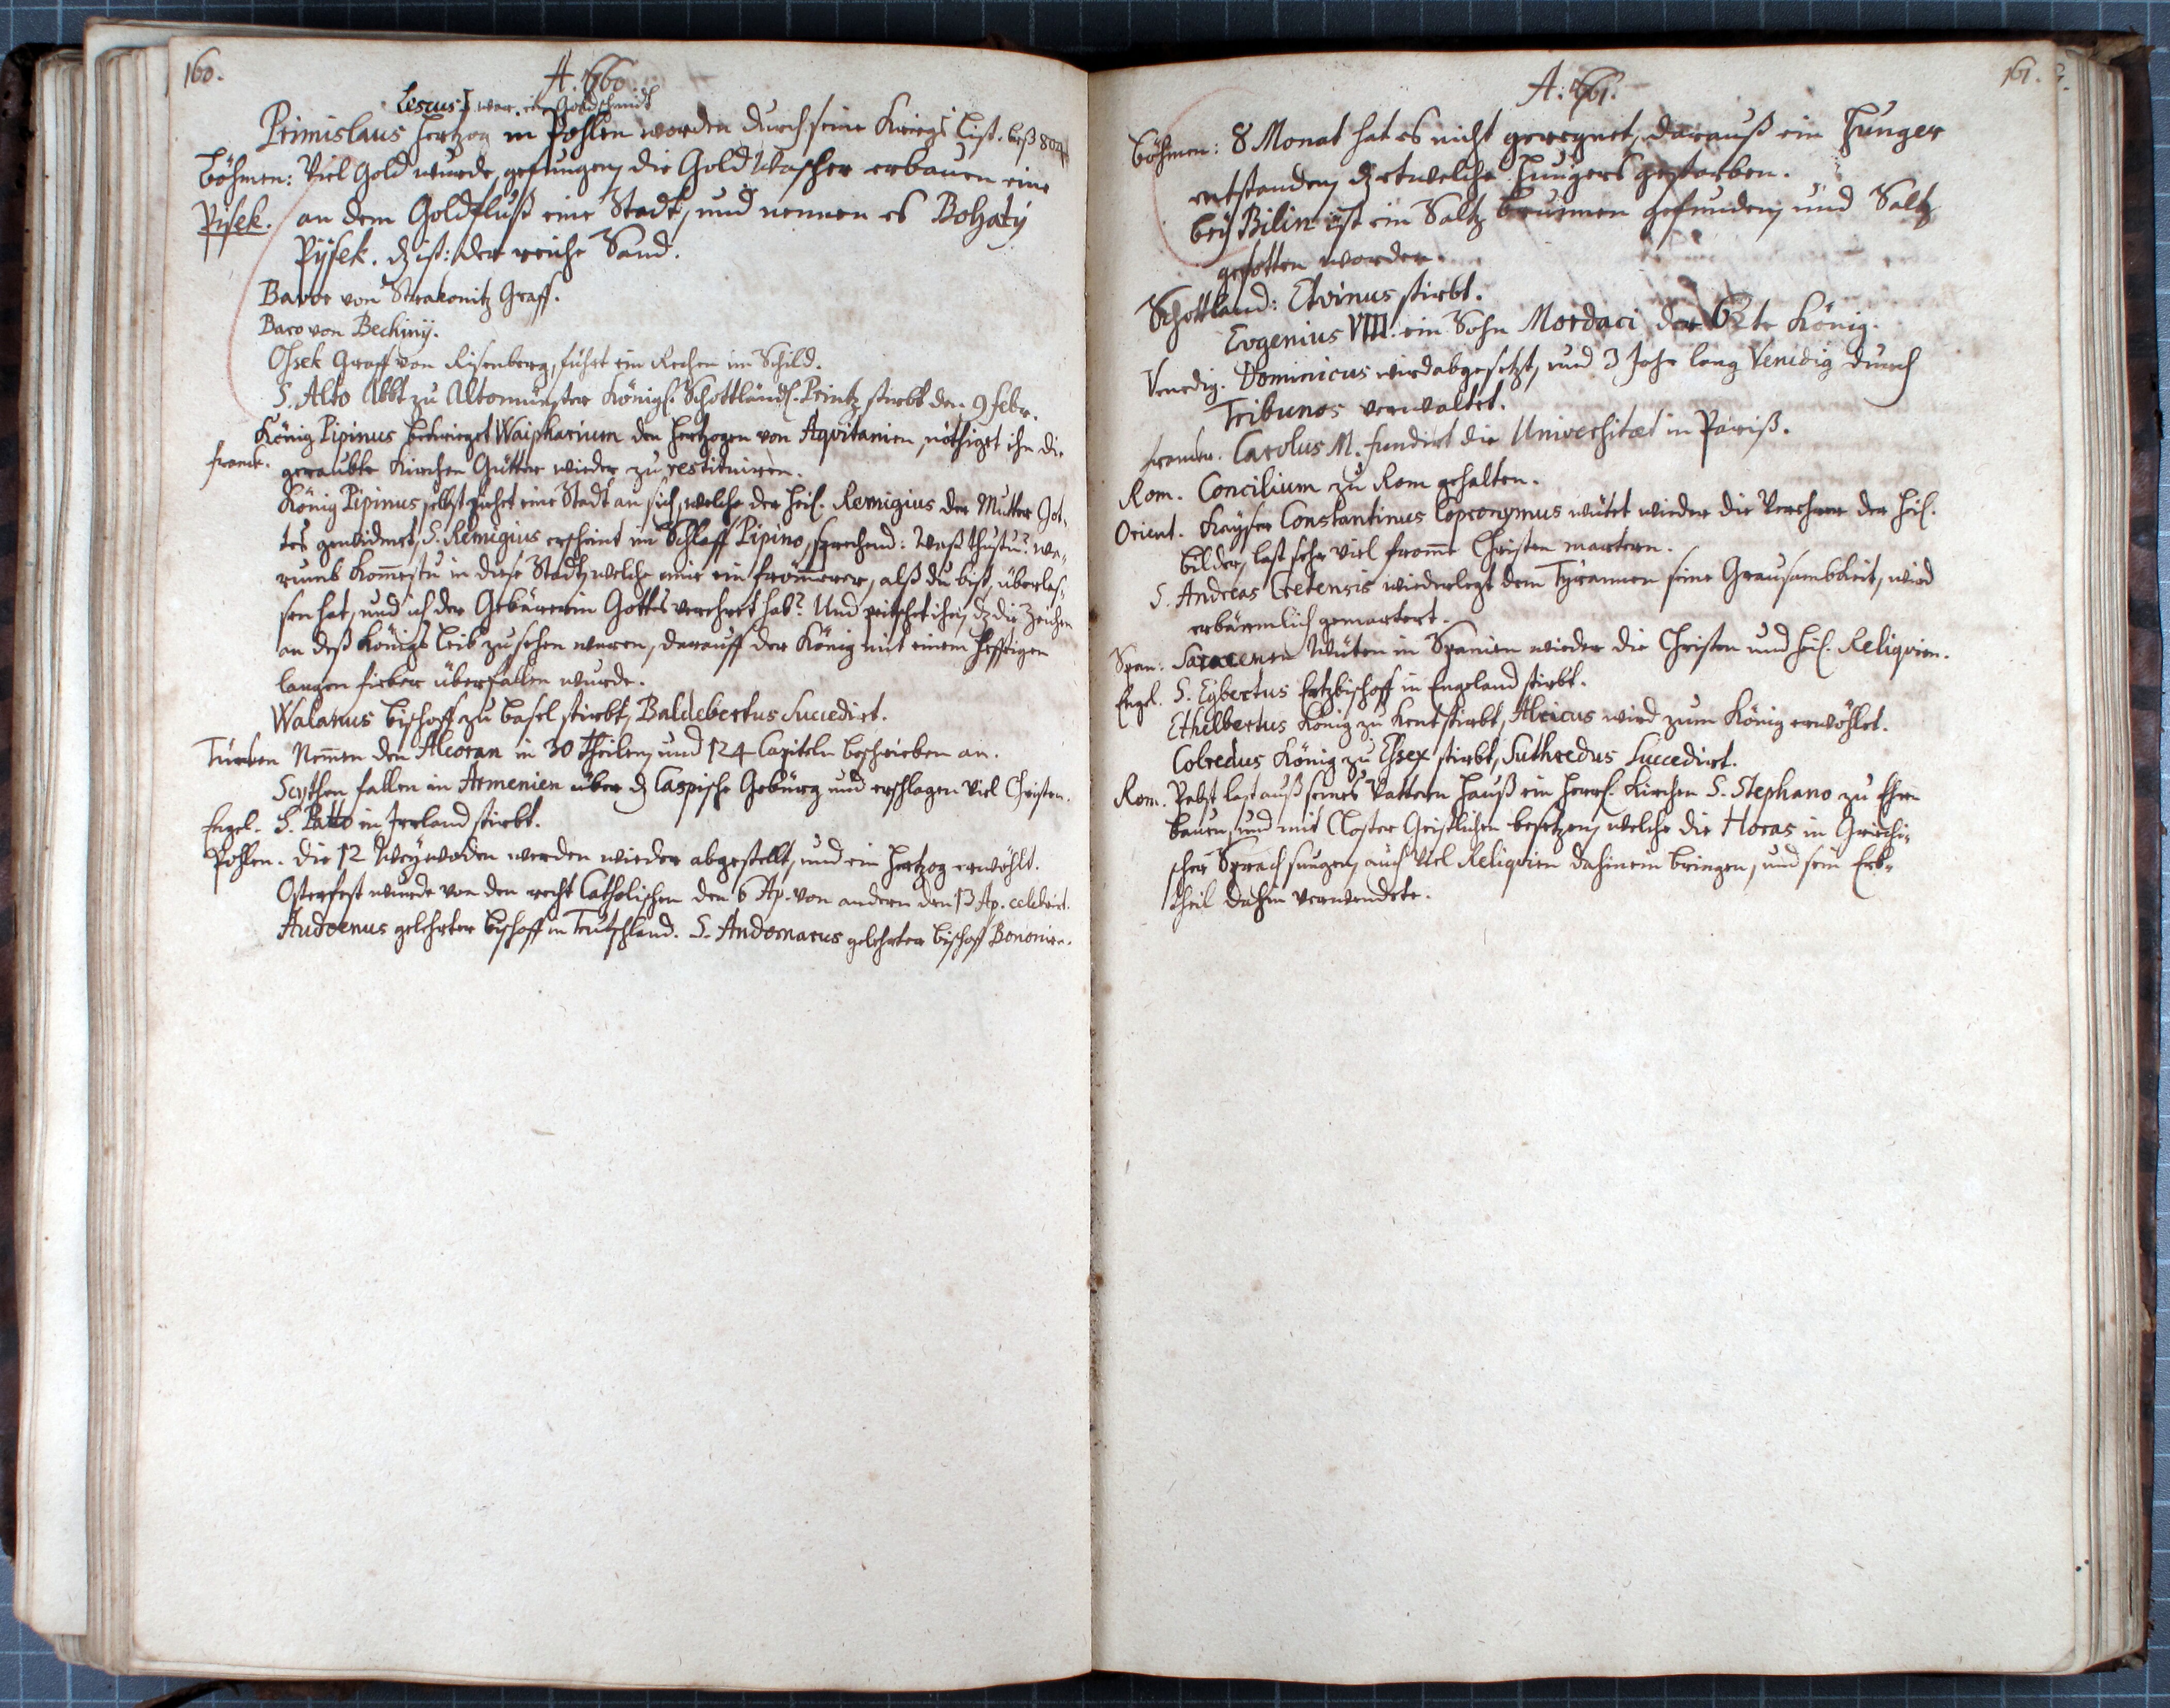 160.
A. 760.
Lescus I war ein Goldschmidt
Primislaus Hertzog in Pohlen worden durch seine Kriegs List. biß 804
Böhmen: Viel Gold wurde gefungen, die Gold Wascher erbauen eine
Pisek. an dem Goldfluß eine Stadt, und nennen es Bohatý
Pýsek. dz ist: der reiche Sand.
Bavor von Strakonitz Graff.
Baro von Bechinij.
Ossek Graff von Risenberg, führt ein Rechen im Schild.
S. Alto Abbt zu Altomünster Königl. Schottländ. Printz stirbt den 9 Febr.
König Pipinus bekrieget Waipharium den Hertzogen von Aqvitanien, nöthiget ihn die
Franck. geraubte Kirchen Gütter wieder zu restituiren.
König Pipinus selbst ziehet eine Stadt an sich, welche der Heil. Remigius der Mutter Got-
tes gewidmet, S. Remigius erscheint im Schlaff Pipino, sprechend: Waß thustu? wa-
rumb kommstu in diese Stadt, welche mir ein frömmerer, alß du bist, überlas-
sen hat, und ich der Gebärerin Gottes verehret hab? Und peitschet ihn, dz die Zeichen
an deß Königs Leib zu sehen waren, darauff der König mit einem hefftigen
langen fieber überfallen wurde.
Walanus Bischoff zu Basel stirbt, Baldebertus Succedirt.
Türken Nemmen den Alcoran in 30 Theilen, und 124 Capiteln beschrieben an.
Scythen fallen in Armenien über dz Caspische Gebürg und erschlagen viel Christen.
Engel. S. Patto in Irrland stirbt.
Pohlen. Die 12 Weywoden werden wieder abgestellt, und ein Hertzog erwöhlt.
Osterfest wurde von den recht Catholischen den 6 Ap. von andern den 13 Ap. celebrirt.
Audoenus gelehrter Bischoff in Teutschland. S. Andomarus gelehrter Bischoff Bononien.
161.
A. 761.
Böhmen: 8 Monat hat es nicht geregnet, darauß ein Hunger
entstanden, dz etwelche Hungers gestorben.
beý Bilin ist ein Saltz brunnen gefunden, und Saltz
gesotten worden.
Schottland: Etvinus stirbt.
Evgenius VIII. ein Sohn Mordaci der 62te König.
Venedig. Dominicus wird abgesetzt, und 3 Jahr lang Venedig durch
Tribunos verwaltet.
Carolus M. fundirt die Universitæt in Pariß.
Rom. Concilium zu Rom gehalten.
Orient. Kayser Constantinus Copronymus wütet wieder die Verehrer der Heil.
Bilder, last sehr viel fromme Christen martern.
S. Andreas Cretensis wiederlegt dem Tyrannen seine Grausambkeit, wird
erbärmlich gemartert.
Span: Saracenen Wüten in Spanien wieder die Christen und Heil. Reliqvien.
Engl. S. Egbertus Ertzbischoff in Engeland stirbt.
Ethelbertus König zu Kent stirbt, Alricus wird zum König erwöhlet.
Colredus König zu Essex stirbt, Suthredus Succedirt.
Rom. Pabst last auß seines Vattern Hauß ein Herrl. Kirchen S. Stephano zu Ehren
bauen, und mit Closter Geistlichen besetzen, welche die Horas in Griechi-
scher Sprach sungen, auch viel Reliqvien dahinein bringen, und sein Erb-
theil dahin verwendete.